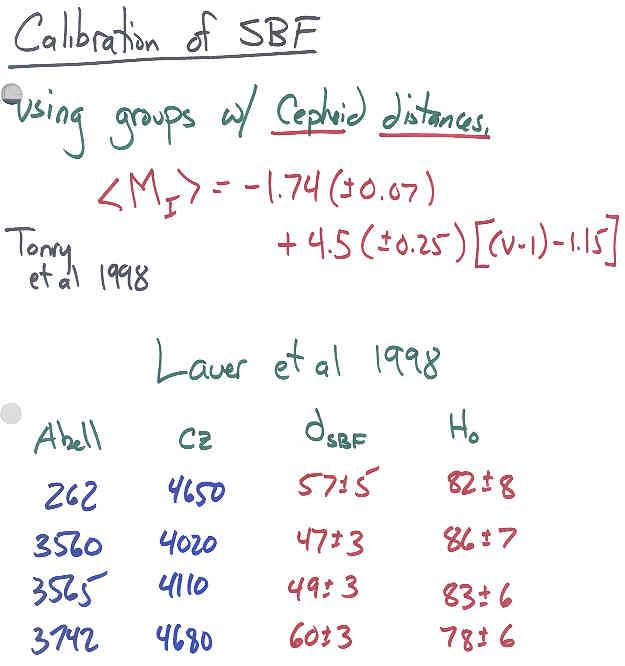 Calibration of SBF
using groups w/ Cepheid distances.
<M_I> = -1.74 (±0.07)
+ 4.5 (±0.25) [(V-I)-1.15]
Tonry
et al 1998
Lauer et al 1998
Abell cz d_SBF H_0
262 4650 57±5 82±8
3560 4020 47±3 86±7
3565 4110 49±3 83±6
3742 4680 60±3 78±6